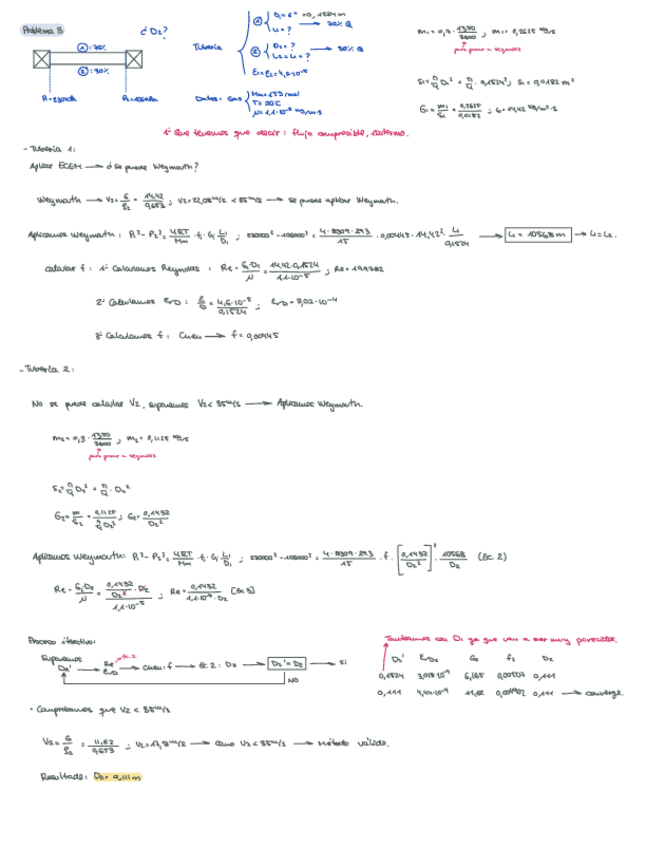 Problema 8
¿ D₂?
① : 70%
② : 30%
Tubería
① D₁ = 6" = 0,1524 m → 70% Q
L₁ = ?
② D₂ = ? → 30% Q
L₂ = L₁ = ?
ε₁ = ε₂ = 4,6·10⁻⁵
Datos: Gas
T = 20°C
ṁ₁ = 0,7 · 1350/3600 ; ṁ₁ = 0,2625 kg/s
para pasar a segundos
S₁ = π/4 D₁² = π/4 · 0,1524² ; S₁ = 0,0182 m²
G = m₁/S₁ = 0,2625/0,0182 ; G = 14,42 kg/m²·s
1º Que tenemos que decir: flujo compresible, isotermo.
- Tubería 1:
Aplicar ECEM → ¿ se puede Weymouth?
Weymouth → V₂ = G/ρ₂ = 14,42/0,653 ; V₂ = 22,08 m/s < 35 m/s → Se puede aplicar Weymouth.
Aplicamos Weymouth: P₁² - P₂² = 4RT/Mm · f · G₁² · L₁/D₁ ; = 4 · 8309 · 293/15 · 0,00445 · 14,42² · L₁/0,1524 → L₁ = 10568 m → L₁ = L₂.
calcular f: 1º Calculamos Reynolds : Re = G·D₁/μ = 14,42·0,1524/1,1·10⁻⁵ ; Re = 199782
2º Calculamos ε/D : ε/D = 4,6·10⁻⁵/0,1524 ; ε/D = 3,02·10⁻⁴
3º Calculamos f: → f = 0,00445
- Tubería 2:
No se puede calcular V₂, suponemos V₂ < 35 m/s → Aplicamos Weymouth.
ṁ₂ = 0,3 · 1350/3600 ; ṁ₂ = 0,1125 kg/s
para pasar a segundos
S₂ = π/4 D₂² = π/4 · D₂²
G₂ = m/S₂ = 0,1125/(π/4 D₂²) ; G₂ = 0,1432/D₂²
Aplicamos Weymouth: P₁² - P₂² = 4RT/Mm · f · G² · L/D₂ ; = 4 · 8309 · 293/15 · f · [0,1432/D₂²]² · 10568/D₂ (Ec. 2)
Re = G·D₂/μ = (0,1432/D₂² · D₂)/1,1·10⁻⁵ ; Re = 0,1432/(1,1·10⁻⁵ · D₂) [Ec. 3]
Proceso iterativo:
Suponemos D₂' → Re Ec. 3 ε/D → f → Ec. 2 : D₂ → D₂' = D₂ → Sí
NO
Tanteamos con D₁ ya que van a ser muy parecidos.
D₂' ε/D₂ G₂ f₂ D₂
0,1524 3,018·10⁻⁴ 6,165 0,111
0,111 11,62 0,111 → converge.
• Comprobamos que V₂ < 35 m/s
V₂ = G/ρ₂ = 11,62/0,653 ; V₂ = 17,8 m/s → Como V₂ < 35 m/s → Método válido.
Resultado: D₂ = 0,111 m